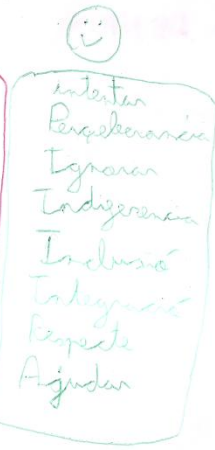 intentar
Perçeberancia
Ignorar
Indigerencia
Inclusió
Integració
Respecte
Ajudar